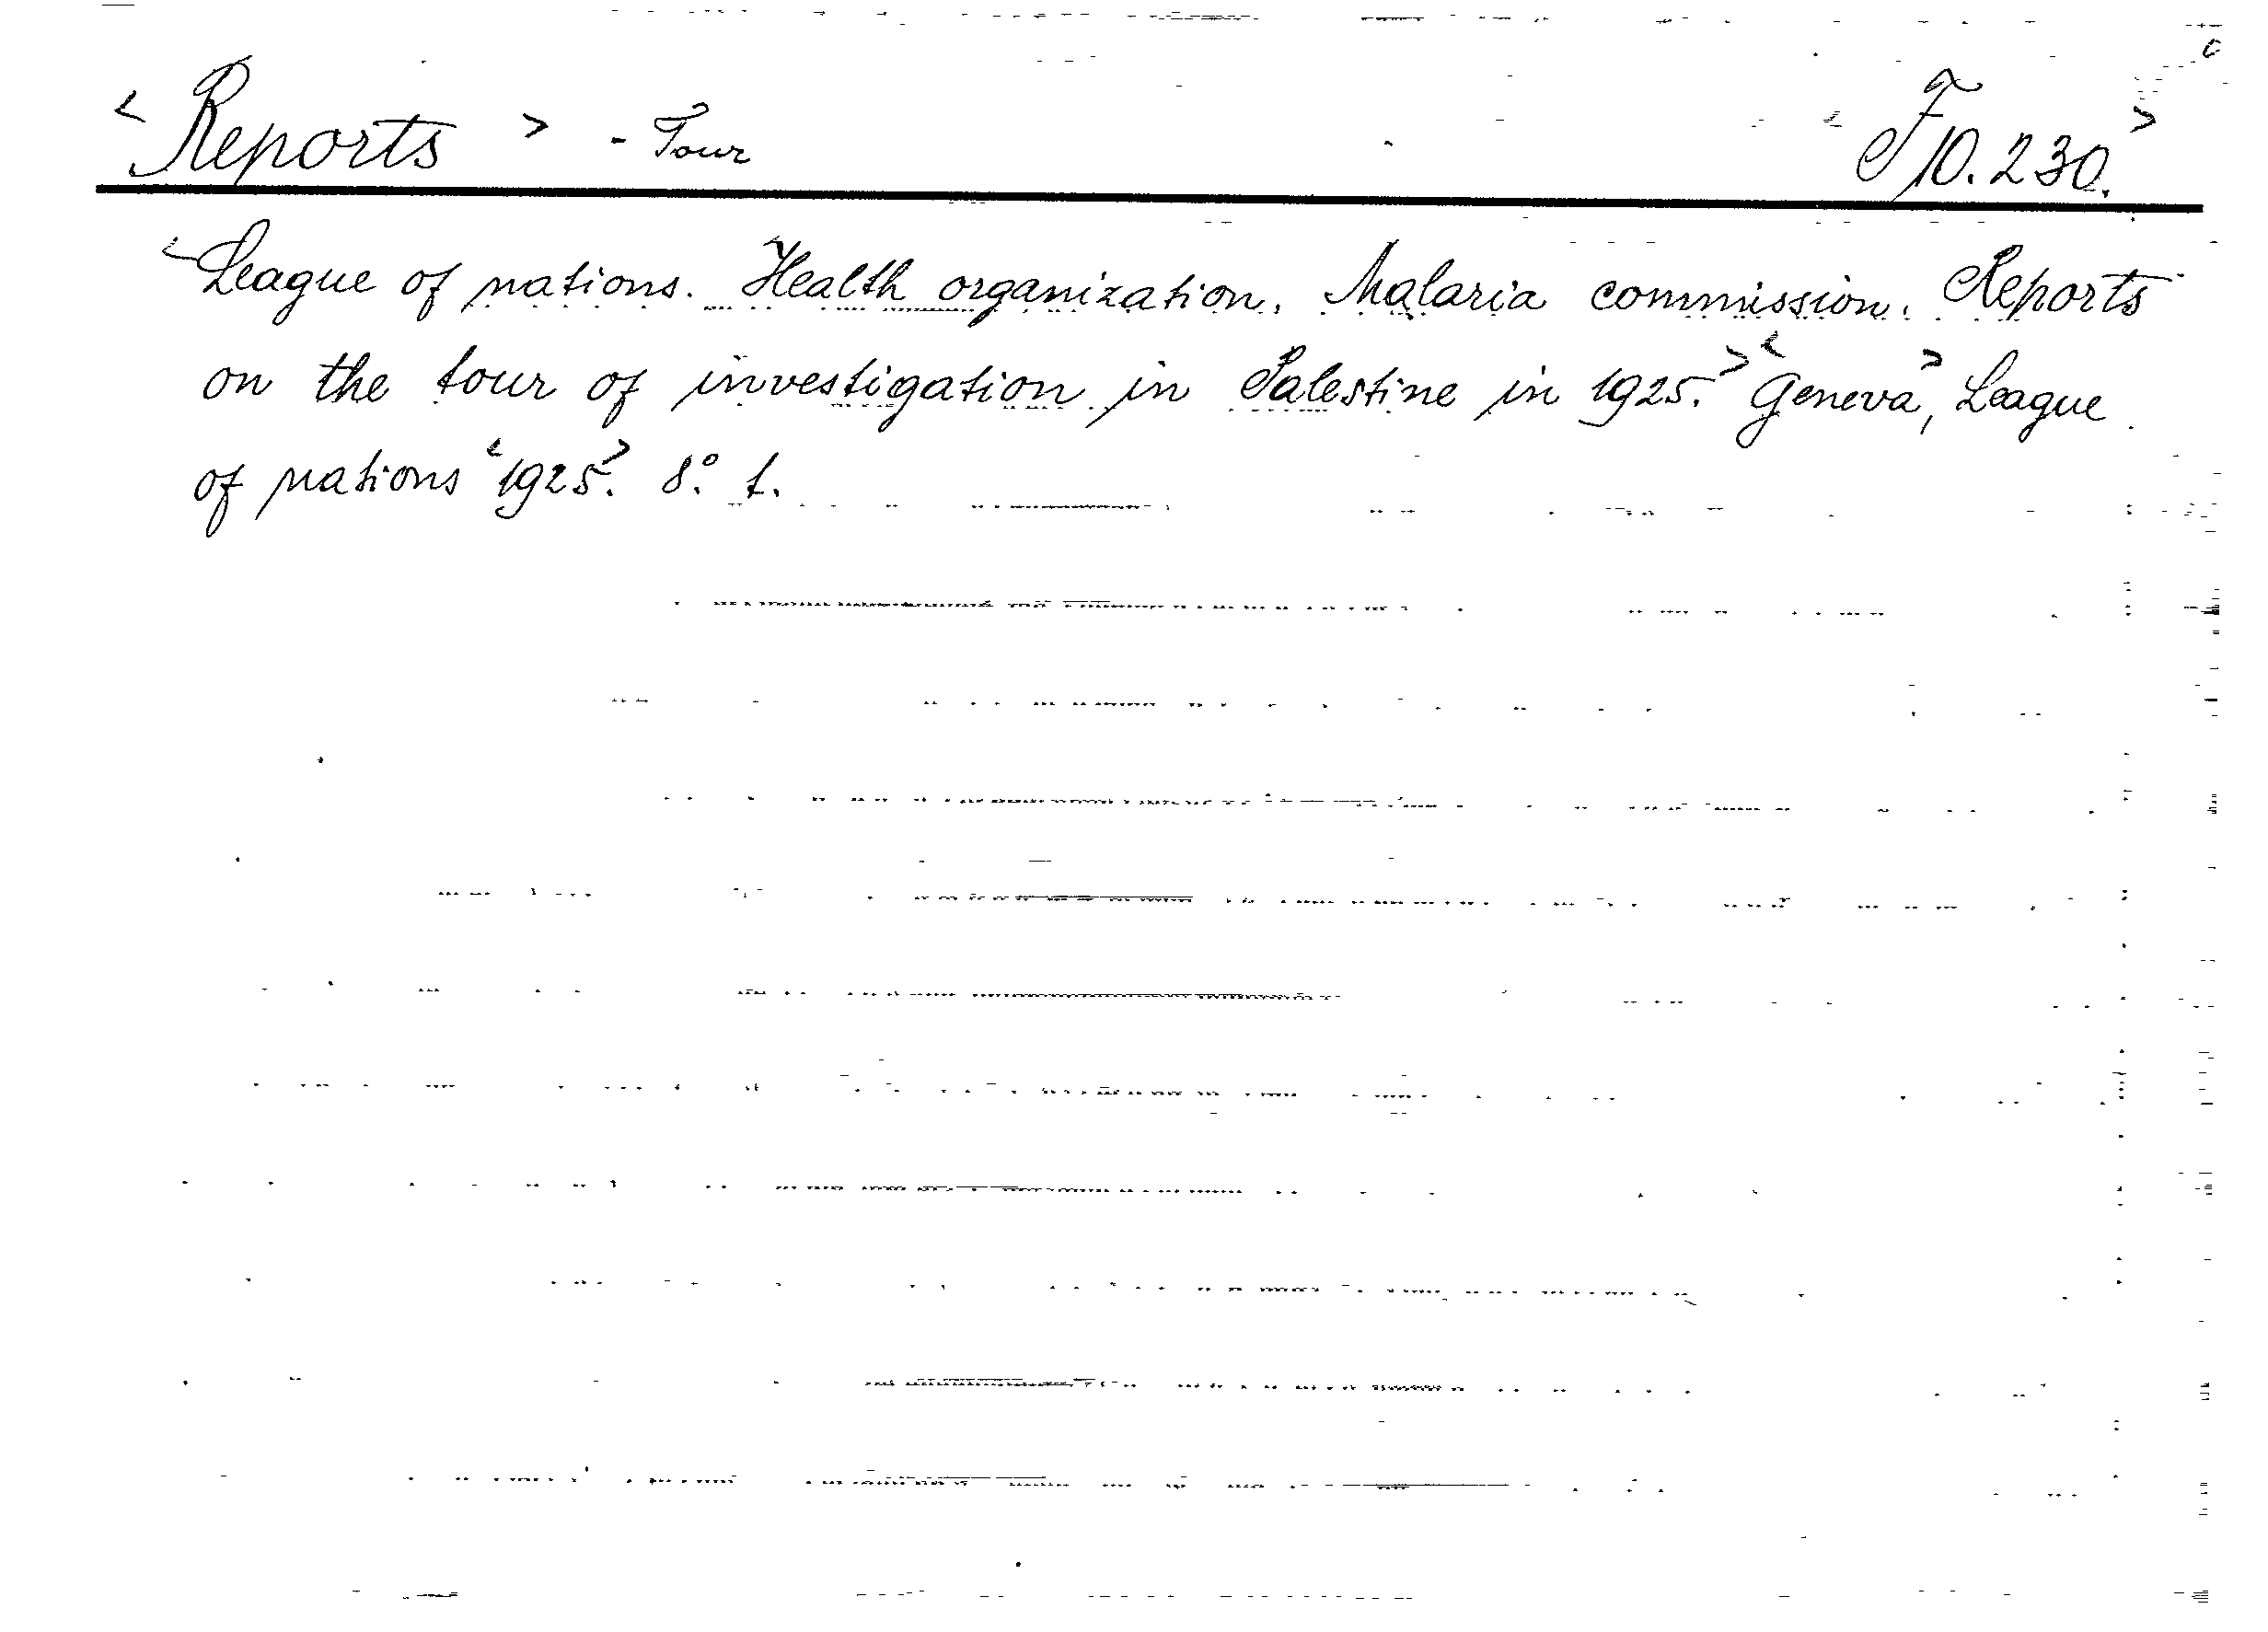 < Reports > - Tour < F 10.230. >
< League of nations. Health organization. Malaria commission. Reports
on the tour of investigation in Palestine in 1925. > < Geneva >, League
of nations < 1925 >. 8°. 1.